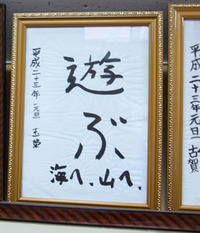 遊ぶ
海へ、山へ、
平成二十三年 元旦
平成二十三年元旦 古賀